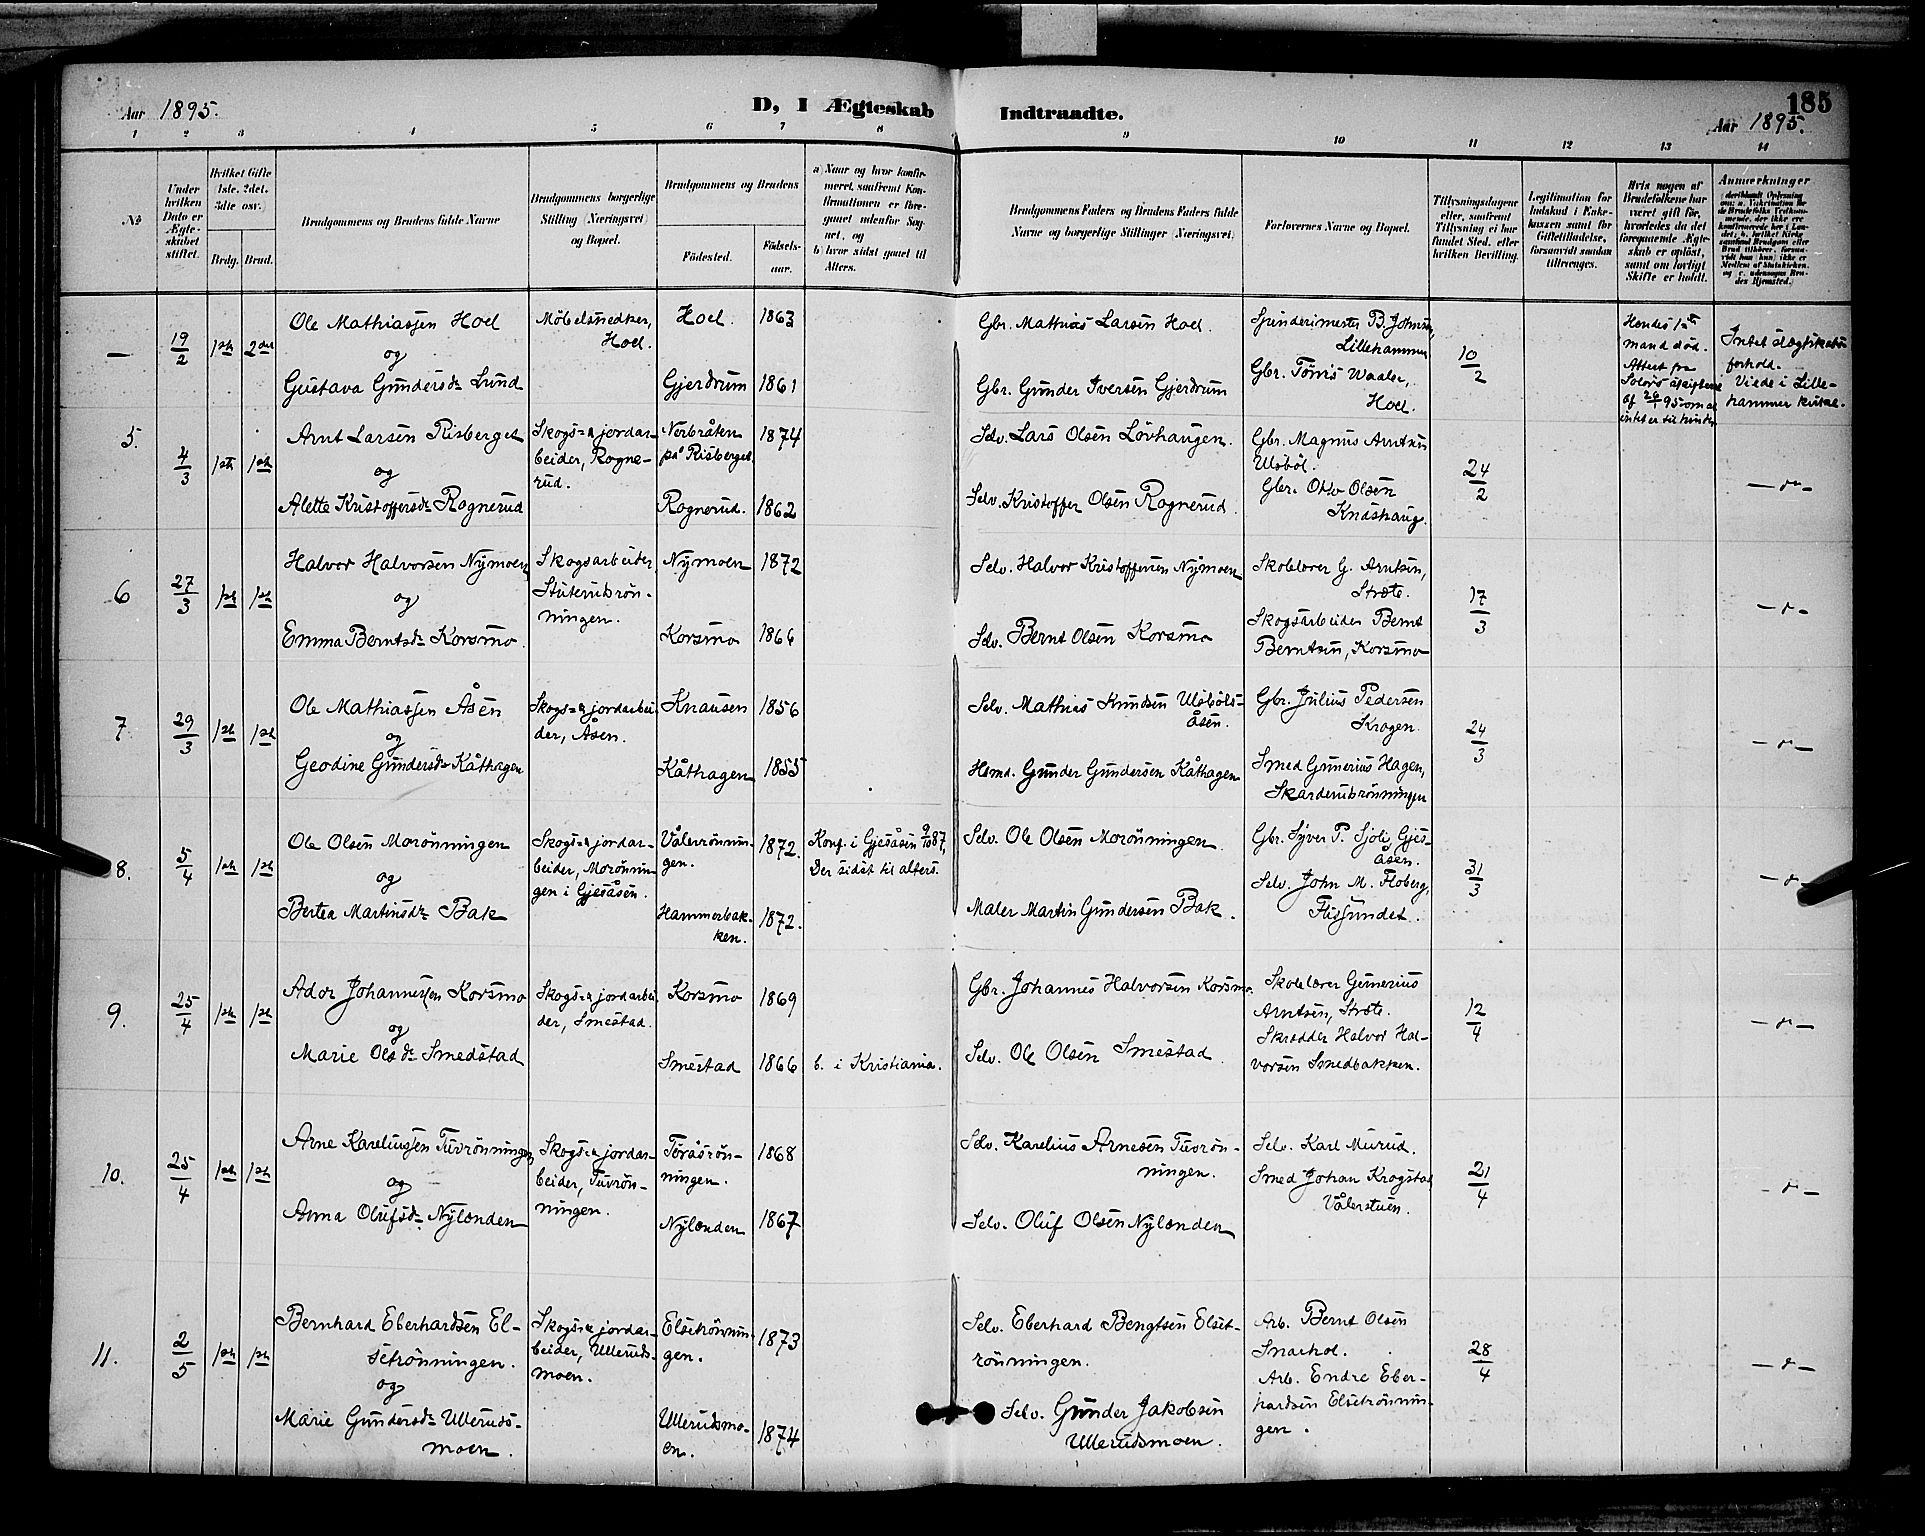 Aar 1895.
D, I Ægteskab Indtraadte.
185
Aar 1895.
1 2 3 4 5 6 7 8 9 10 11 12 13 14
No
Under hvilken Dato er Ægteskabet stiftet.
Hvilket Gifte 1ste, 2det, 3die osv.)
Brdg. Brud.
Brudgommens og Brudens fulde Navne
Brudgommens borgerlige Stilling (Næringsvei) og Bopæl.
Brudgommens og Brudens
Fødested.
Fødselsaar.
a) Naar og hvor konfirmeret, saafremt Konfirmationen er foregaaet udenfor Sognet, og
b) hvor sidst gaaet til Alters.
Brudgommens Faders og Brudens Faders fulde Navne og borgerlige Stillinger (Næringsvei)
Forlovernes Navne og Bopæl.
Tillysningsdagene eller, saafremt Tillysning ei har fundet Sted, efter hvilken Bevilling.
Legitimation for Indskud i Enkekassen samt for Giftetilladelse, forsaavidt saadan tiltrænges.
Hvis nogen af Brudefolkene har været gift før, hvorledes da det foregaaende Ægteskab er opløst, samt om lovligt Skifte er holdt.
Anmærkninger
— 19/2 1ste 2det
Ole Mathiassen Hoel
og
Gustava Gundersdr Lund
Møbelsnedker,
Hoel.
Hoel. 1863
Gjerdrum 1861
Gbr. Mathias Larsen Hoel.
Gbr. Gunder Iversen Gjerdrum
B. Johnsen,
Lillehammer
Gbr. Tønis Waaler,
Hoel.
10/2
Hendes 1ste
mand død.
Attest fra
Intet slægtskabs
forhold.
Viede i Lille-
hammer kirke.
5. 4/3 1ste 1ste
Arnt Larsen Risberget
og
Alette Kristoffersdr Rognerud
Skogs- & jordar-
beider, Rogne-
rud.
Nerbråten
på Risberget. 1874
Rognerud. 1862
Selv. Lars Olsen Løvhaugen.
Selv. Kristoffer Olsen Rognerud.
Gbr. Magnus Arntsen
Ulsbøl.
Gbr. Otto Olsen
Knashaug.
24/2
6 27/3 1ste 1ste
Halvor Halvorsen Nymoen
og
Emma Berntsdr Korsmo.
Skogsarbeider,
Stuterudrøn-
ningen.
Nymoen 1872
Korsmo 1864
Selv. Halvor Kristoffersen Nymoen
Selv. Bernt Olsen Korsmo
Skolelærer G. Arntsen,
Stræte.
Skogsarbeider Bernt
Berntsen, Korsmo
17/3
7 29/3 1ste 1ste
Ole Mathiassen Åsen
og
Geodine Gundersdr Kåthagen
Skogs- & jordarbei
der, Åsen.
Knausen 1856
Kåthagen 1855
Selv. Mathias Knudsen Ulsbøls-
åsen.
Hsmd. Gunder Gundersen Kåthagen
Gbr. Julius Pedersen
Krogen.
Smed Gunerius Hagen,
Skarderudrønningen
24/3
8. 5/4 1ste 1ste
Ole Olsen Morønningen
og
Bertea Martinsdr Bak
Skogs- & jordar-
beider, Morønnin-
gen i Gjesåsen.
Vålerrønnin-
gen. 1872.
Hammerbak-
ken. 1872.
Konf. i Gjesåsen 9/10 87,
Der sidst til alters.
Selv. Ole Olsen Morønningen.
Maler Martin Gundersen Bak.
Gbr. Syver P. Sjoli, Gjes-
åsen.
Selv. John M. Floberg,
Flissundet.
31/3
9. 25/4 1ste 1ste
Ador Johannessen Korsmo
og
Marie Olsdr Smedstad
Skogs- & jordarbei
der, Smestad.
Korsmo 1869
Smestad 1866
b. i Kristiania.
Gbr. Johannes Halvorsen Korsmo.
Selv. Ole Olsen Smestad.
Skolelærer Gunerius
Arntsen, Stræte.
Skrædder Halvor Hal-
vorsen Smedbakken.
12/4
10. 25/4 1ste 1ste
Arne Kareliussen Tuvrønningen,
og
Anna Olufsdr Nylænden
Skogs- & jordar-
beider, Tuvrøn-
ningen.
Toråsrøn-
ningen. 1868
Nylænden 1867
Selv. Karelius Arnesen Tuvrøn-
ningen.
Selv. Oluf Olsen Nylænden
Selv. Karl Murud.
Smed Johan Krogstad
Vålerstuen.
21/4
11. 2/5 1ste 1ste
Bernhard Eberhardsen El-
setrønningen.
og
Marie Gundersdr Ulleruds-
moen.
Skogs- & jordar-
beider, Ulleruds-
moen.
Elsetrønnin-
gen. 1873
Ullerudsmo-
en. 1874
Selv. Eberhard Bengtsen Elset-
rønningen.
Selv. Gunder Jakobsen
Ullerudsmoen.
Arb. Bernt Olsen
Snarhol.
Arb. Endre Eber-
hardsen Elsetrønnin-
gen.
28/4